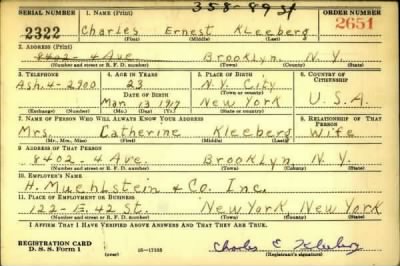 358-89 st
SERIAL NUMBER 1. NAME (Print) ORDER NUMBER
2322 Charles Ernest Kleeberg 2651
(First) (Middle) (Last)
2. ADDRESS (Print)
8402 - 4 Ave. Brooklyn N.Y.
(Number and street or R. F. D. number) (Town) (County) (State)
3. TELEPHONE 4. AGE IN YEARS 5. PLACE OF BIRTH 6. COUNTRY OF CITIZENSHIP
Ash. 4-2900 23 N.Y. City
DATE OF BIRTH (Town or county)
Mar 13 1917 New York U.S.A.
(Exchange) (Number) (Mo.) (Day) (Yr.) (State or country)
7. NAME OF PERSON WHO WILL ALWAYS KNOW YOUR ADDRESS 8. RELATIONSHIP OF THAT PERSON
Mrs. Catherine Kleeberg Wife
(Mr., Mrs., Miss) (First) (Middle) (Last)
9. ADDRESS OF THAT PERSON
8402 - 4 Ave. Brooklyn N.Y.
(Number and street or R. F. D. number) (Town) (County) (State)
10. EMPLOYER'S NAME
H. Muehlstein & Co. Inc.
11. PLACE OF EMPLOYMENT OR BUSINESS
122-E. 42 St. New York New York
(Number and street or R. F. D. number) (Town) (County) (State)
I AFFIRM THAT I HAVE VERIFIED ABOVE ANSWERS AND THAT THEY ARE TRUE.
REGISTRATION CARD
D. S. S. Form 1 (over) 16-17105 Charles E. Kleeberg
(Registrant's signature)